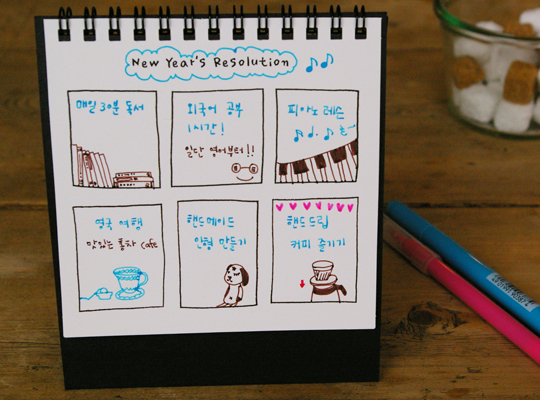 New Year's Resolution
매일 30분 독서
외국어 공부
1시간!
일단 영어부터!!
피아노 레슨
영국 여행
맛있는 홍차 Cafe
핸드메이드
인형 만들기
핸드드립
커피 즐기기